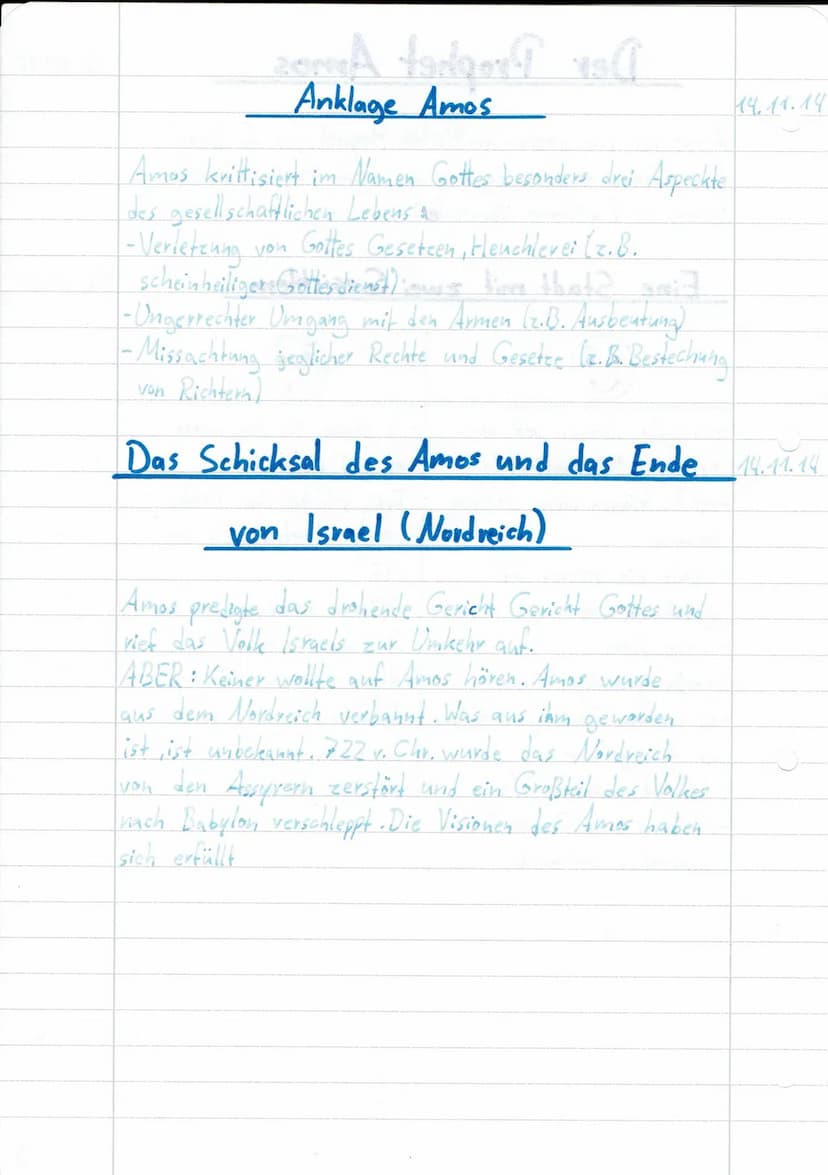 Anklage Amos 14.11.14
Amos krittisiert im Namen Gottes besonders drei Aspeckte
des gesellschaftlichen Lebens:
-Verletzung von Gottes Gesetzen, Heuchlerei (z.B.
scheinheiliger Gottesdienst)
-Ungerrechter Umgang mit den Armen (z.B. Ausbeutung)
-Missachtung jeglicher Rechte und Gesetze (z.B. Bestechung
von Richtern)
Das Schicksal des Amos und das Ende 14.11.14
von Israel (Nordreich)
Amos predigte das drohende Gericht Gericht Gottes und
rief das Volk Israels zur Umkehr auf.
ABER: Keiner wollte auf Amos hören. Amos wurde
aus dem Nordreich verbannt. Was aus ihm geworden
ist, ist unbekannt. 722 v. Chr. wurde das Nordreich
von den Assyrern zerstört und ein Großteil des Volkes
nach Babylon verschleppt. Die Visionen des Amos haben
sich erfüllt